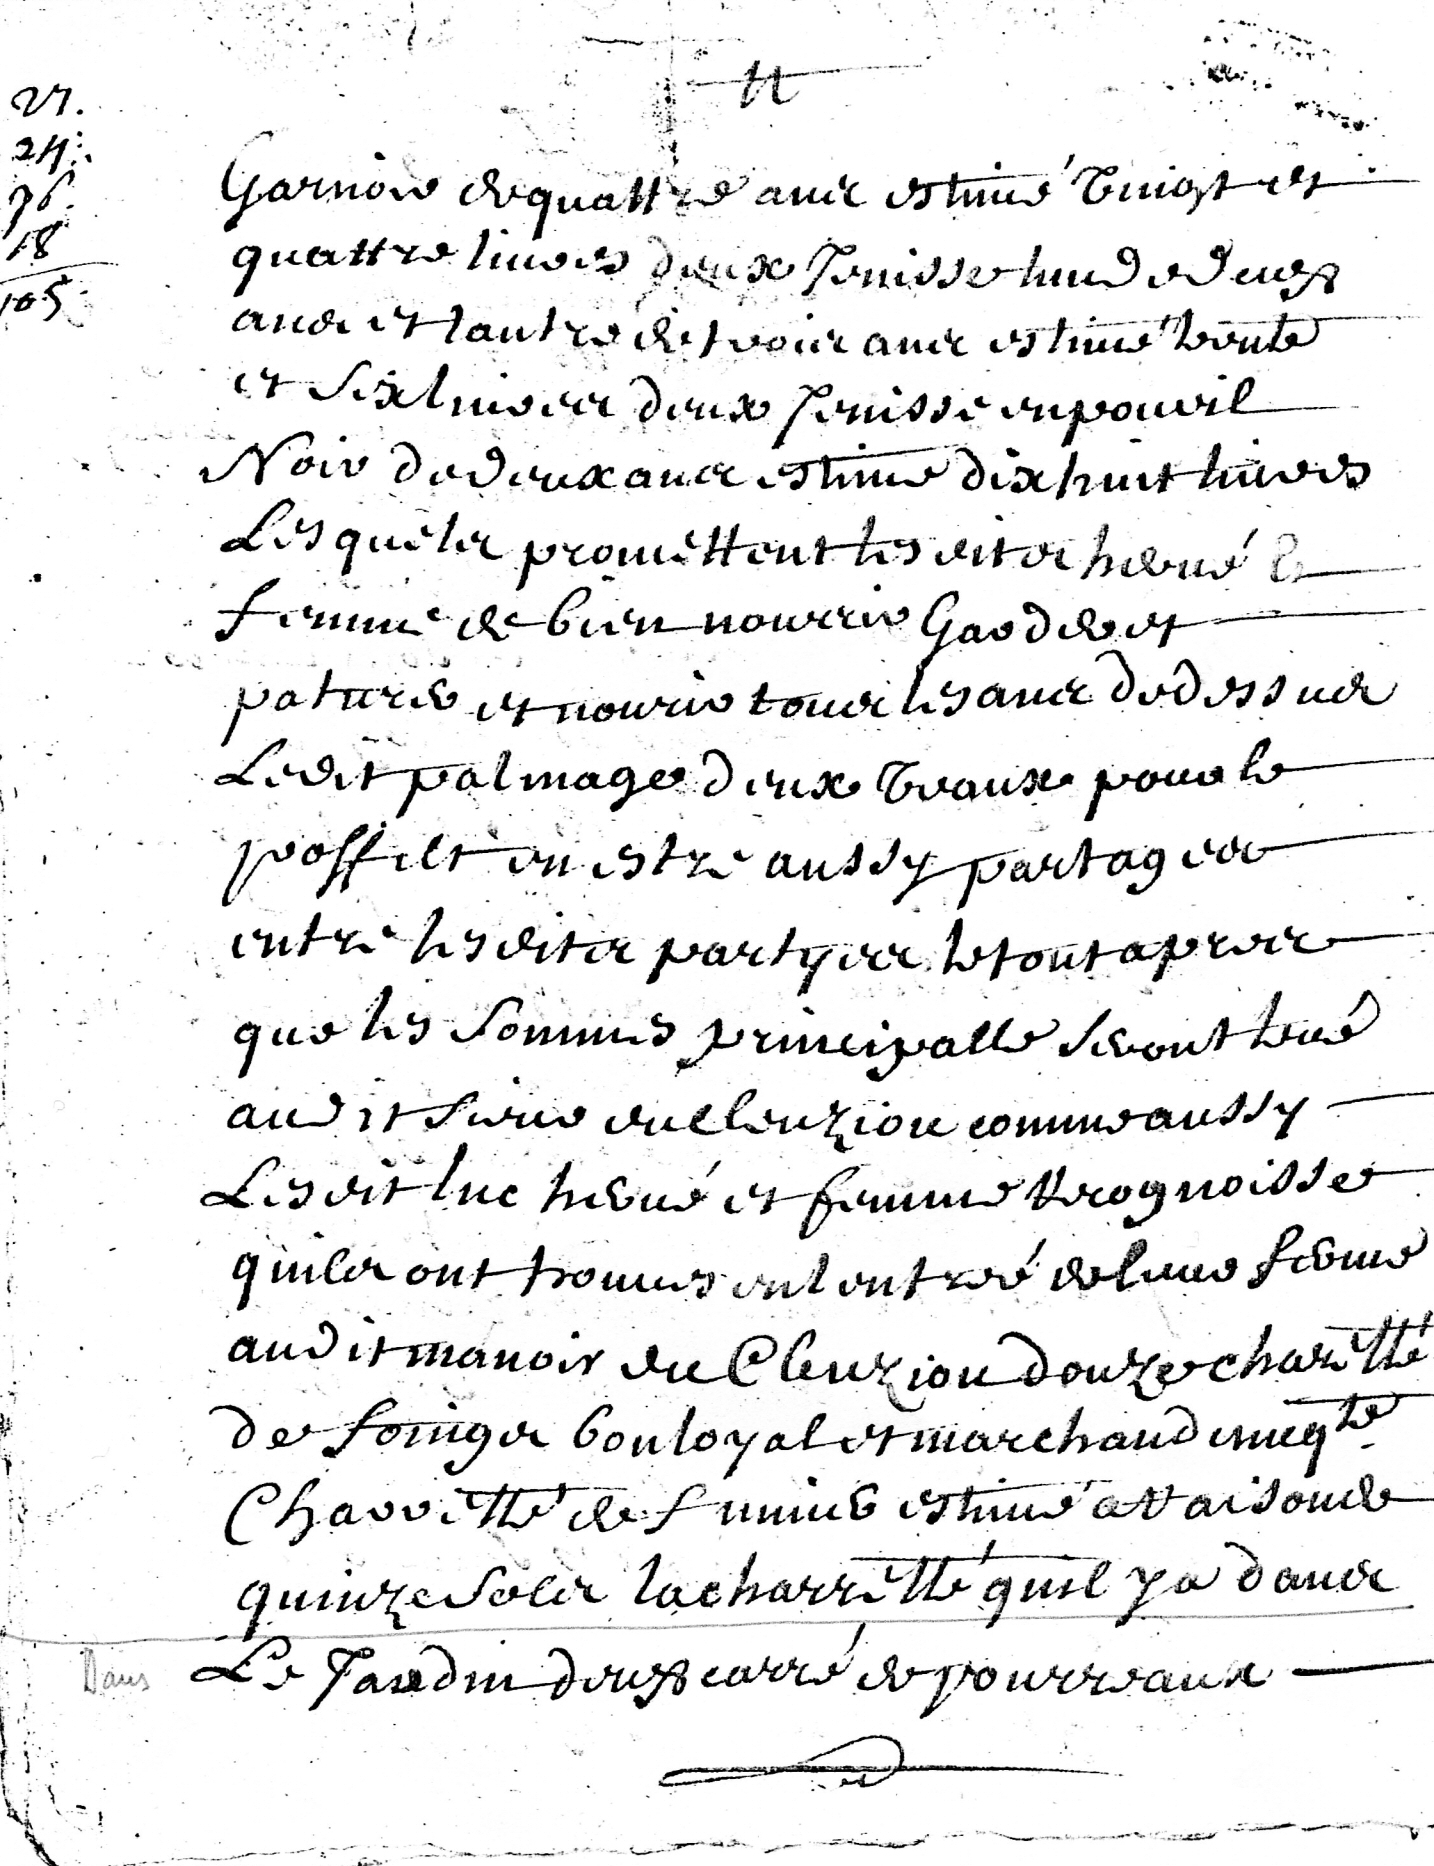 27.
24.
36.
18
105
Garniow de quattre ans estimé vingt et
quattre livres deux Jenisse lune de deux
ans et lautre de trois ans estimé trente
et Six livres deux Jenisse en pouoil
Noir de deux ans estimé dix huit livres
Les quels promettent les dits hervé et
femme de bien nourrir Garder et
paturer et nourir tous les ans de dessus
Ledit palmage deux veaux pour le
proffilt en estre aussy partager
entre les dits partyes le tout apres
que les Sommes principalle Seront levé
audit Sieur du Cleuziou comme aussy
Les dit luc hervé et femme Recognoisse
quils ont trouves en lentreé de leur ferme
audit manoir du Cleuziou douze charetté
de foinges bon loyal et marchand
Charretté de fumier estimé a raison de
quinze Sols la charretté quil y a dans
Dans
Le Jardin deux carré de pourreaux